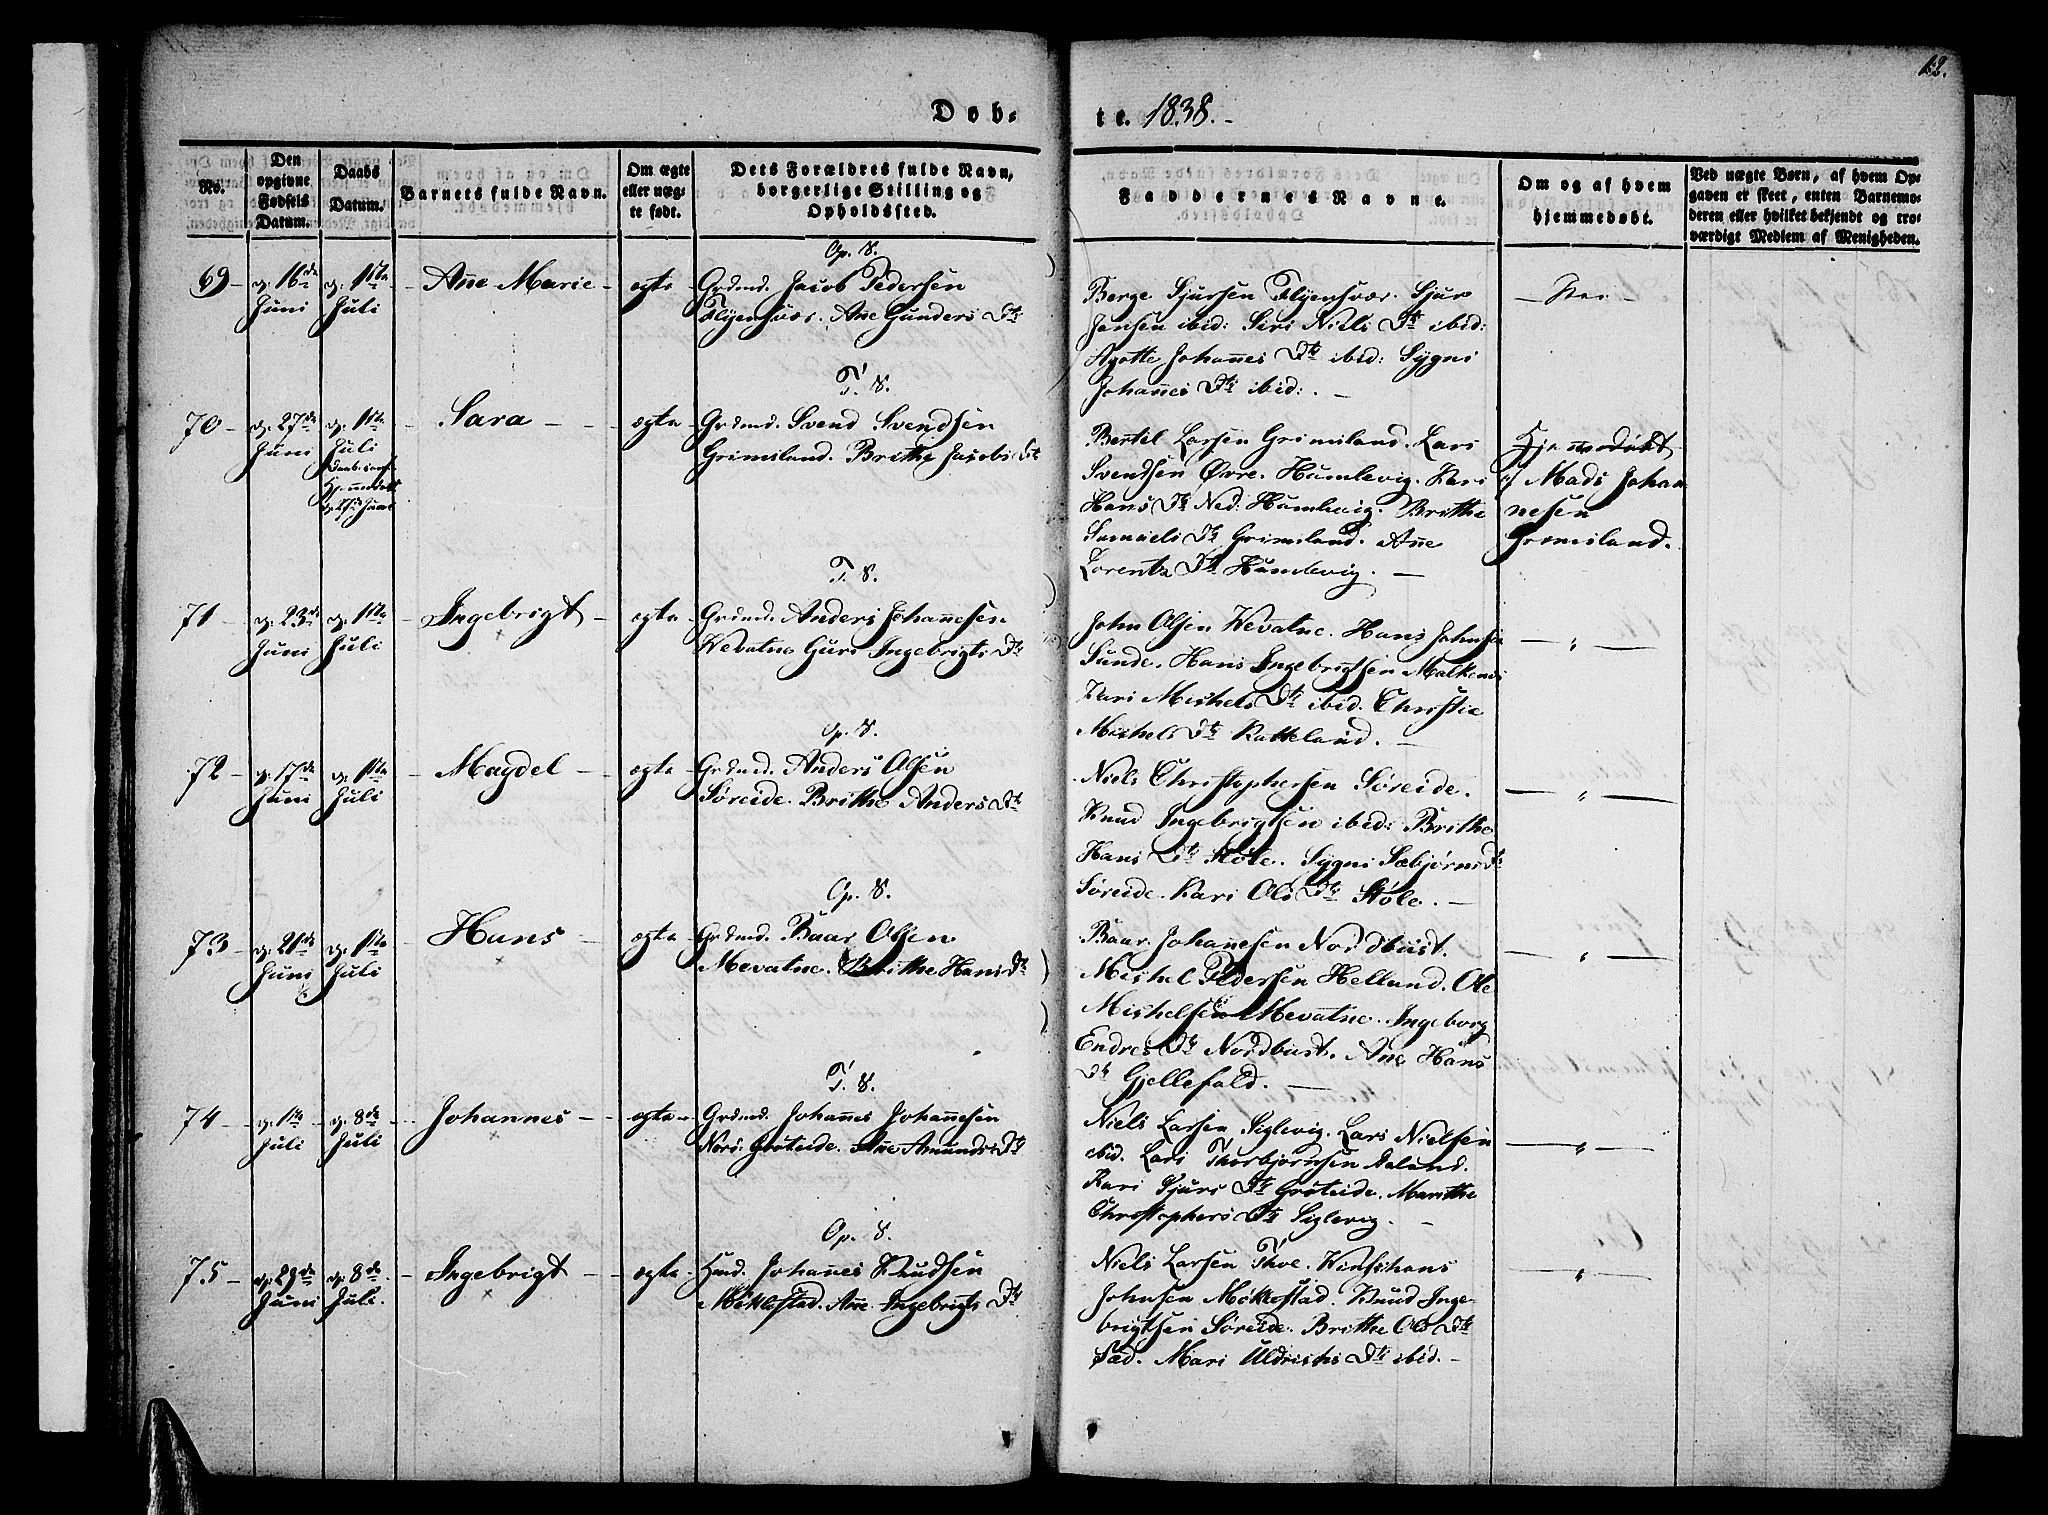 12.
Døb-
te. 1838.
No.
Den opgivne Fødsels Datum.
Daabs Datum.
Barnets fulde Navn.
Om ægte eller uægte født.
Dets Forældres fulde Navn, borgerlige Stilling og Opholdssted.
Faddernes Navne.
Om og af hvem hjemmedøbt.
Ved uægte Børn, af hvem Opgaven er skeet, enten Barnemoderen eller hvilket bekjendt og troværdigt Medlem af Menigheden.
Op. S.
69 - d: 16de Juni d: 1ste Juli - Añe Marie - ægte
Grdmd. Jacob Pedersen
Flyensvær. Añe Gunders Dtr
Berge Sjursen Flyensvær. Sjur
Jansen ibid: Siri Niels Dtr ibid:
Agotte Johañes Dtr ibid: Sygni
Johañes Dtr ibid: . -
T. S.
70 - d: 27de Juni d: 1ste Juli
Sara - - - ægte
Grdmd. Svend Svendsen
Grimsland. Brithe Jacobs Dtr
Bertel Larsen Grimsland. Lars
Svendsen Øvre. Humlevig. Kari
Hans Dtr Ned: Humlevig. Brithe
Samuels Dtr Grimsland. Añe
Lorentz Dtr Humlevig. -
Hjemmedøbt
af Mads Johan
nesen
Grimsland.
T. S.
71 - d: 23de Juni d: 1ste Juli
Ingebrigt - ægte
Grdmd. Anders Johañesen
Kevatne Guri Ingebrigts Dtr
John Olsen Kevatne. Hans Johnsen
Sunde. Hans Ingebrigtsen Malkenes
Kari Michels Dtr ibid. Christie
Michels Dtr Katteland. -
- " -
Op. S.
72 - d: 17de Juni d: 1ste Juli
- Magdel - ægte
Grdmd. Anders Olsen
Søreide. Brithe Anders Dtr
Niels Christophersen Søreide.
Knud Ingebrigtsen ibid: Brithe
Hans Dtr Støle. Sygni Sæbjørns Dtr
Søreide. Kari Ols Dtr Støle. -
- " -
Op. S.
73 - d: 21de Juni d: 1ste Juli
- Hans - ægte
Grdmd. Baar Olsen
Mevatne. Brithe Hans Dtr
Baar Johañesen Nordbust.
Michel Pedersen Helland. Ole
Michelsen Mevatne. Ingeborg
Endres Dtr Nordbust. Añe Hans
Dtr Gjellefald. -
- " -
T. S.
74 - d: 1ste Juli d: 8de Juli
Johannes - ægte -
Grdmd. Johañes Johañesen
Nors: Grøteide. Añe Amunds Dtr
Niels Larsen Siglevig. Lars Nielsen
ibid. Lars Thorbjørnsen Aaland.
Kari Sjurs Dtr Grøteide. Marithe
Christophers Dtr Siglevig. -
- " -
Op. S.
75 - d: 29de Juni d: 8de Juli.
- Ingebrigt - - ægte
Hmd. Johañes Knudsen
Møklestad. Añe Ingebrigts Dtr
Niels Larsen Thoe. Hans
Johnsen Møklestad. Knud Inge-
brigtsen Søreide. Brithe Ols Dtr
Sæd. Mari Uldrichs Dtr ibid. -
- " -